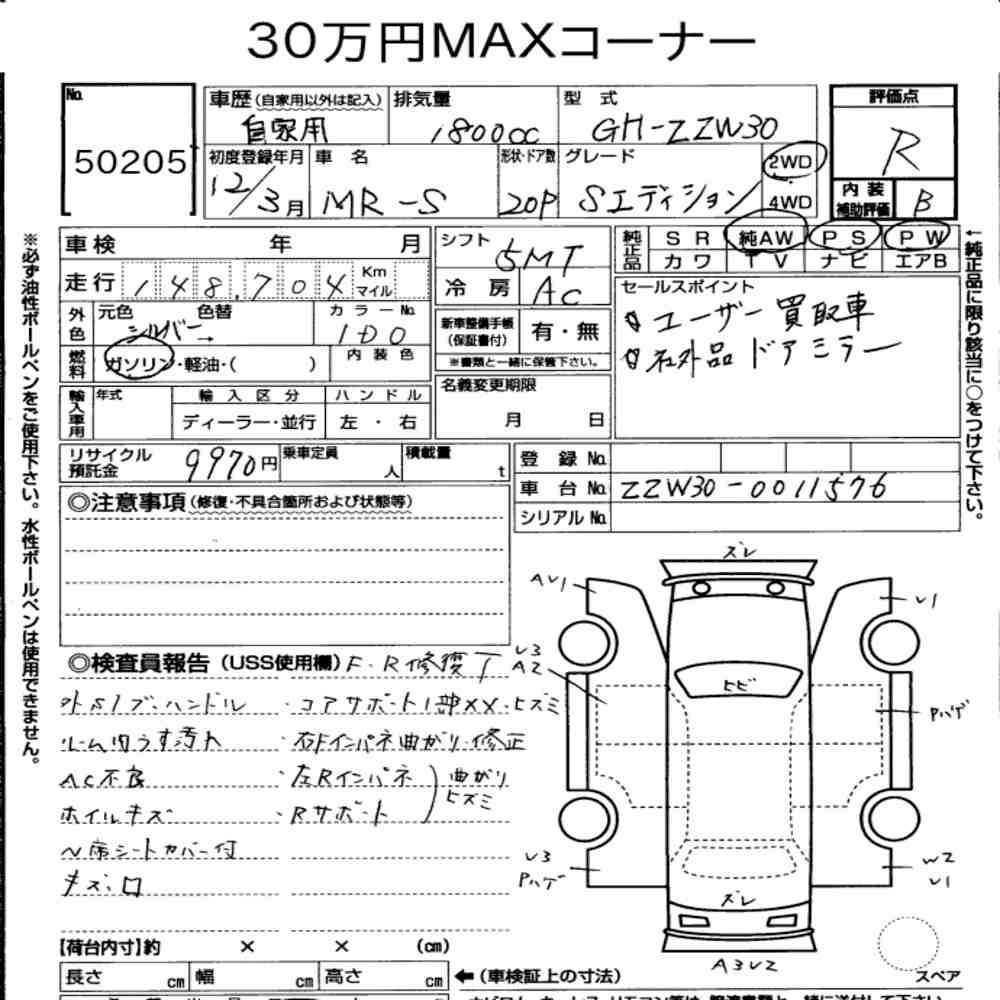 30万円MAXコーナー
No. 50205
車歴（自家用以外は記入） 自家用
排気量 1800cc
型式 GH-ZZW30
評価点 R
初度登録年月 12/3月
車名 MR-S
形状・ドア数 2DP
グレード Sエディション
2WD
4WD
内装補助評価 B
※必ず油性ボールペンをご使用下さい。水性ボールペンは使用できません。
車検 年 月
走行 148,704 Km マイル
外色 元色 シルバー → 色替
カラーNo. 1D0
燃料 ガソリン・軽油・( )
内装色
輸入車用 年式 輸入区分 ディーラー・並行 ハンドル 左・右
シフト 5MT
冷房 AC
新車整備手帳（保証書付） 有・無
※書類と一緒に保管下さい。
名義変更期限 月 日
純正品 SR 純AW PS PW
カワ TV ナビ エアB
セールスポイント
ユーザー買取車
社外品ドアミラー
←純正品に限り該当に○をつけて下さい。
リサイクル預託金 9970円
乗車定員 人
積載量 t
登録No.
車台No. ZZW30-0011576
シリアルNo.
◎注意事項（修復・不具合箇所および状態等）
◎検査員報告（USS使用欄） F・R修復
外S1ブ・ハンドル
・コアサポート1部××・ヒズミ
ルーム内うす汚れ
・右Fインパネ曲がり・修正
AC不良
・左Rインパネ
ホイルキズ
・Rサポート
曲がり
ヒズミ
N席シートカバー付
キズ・ロ
ズレ
AU1
U1
U3
A2
ヒビ
Pハゲ
U3
Pハゲ
W2
U1
ズレ
A3U2
スペア
【荷台内寸】約 × × (cm)
長さ cm 幅 cm 高さ cm
←（車検証上の寸法）